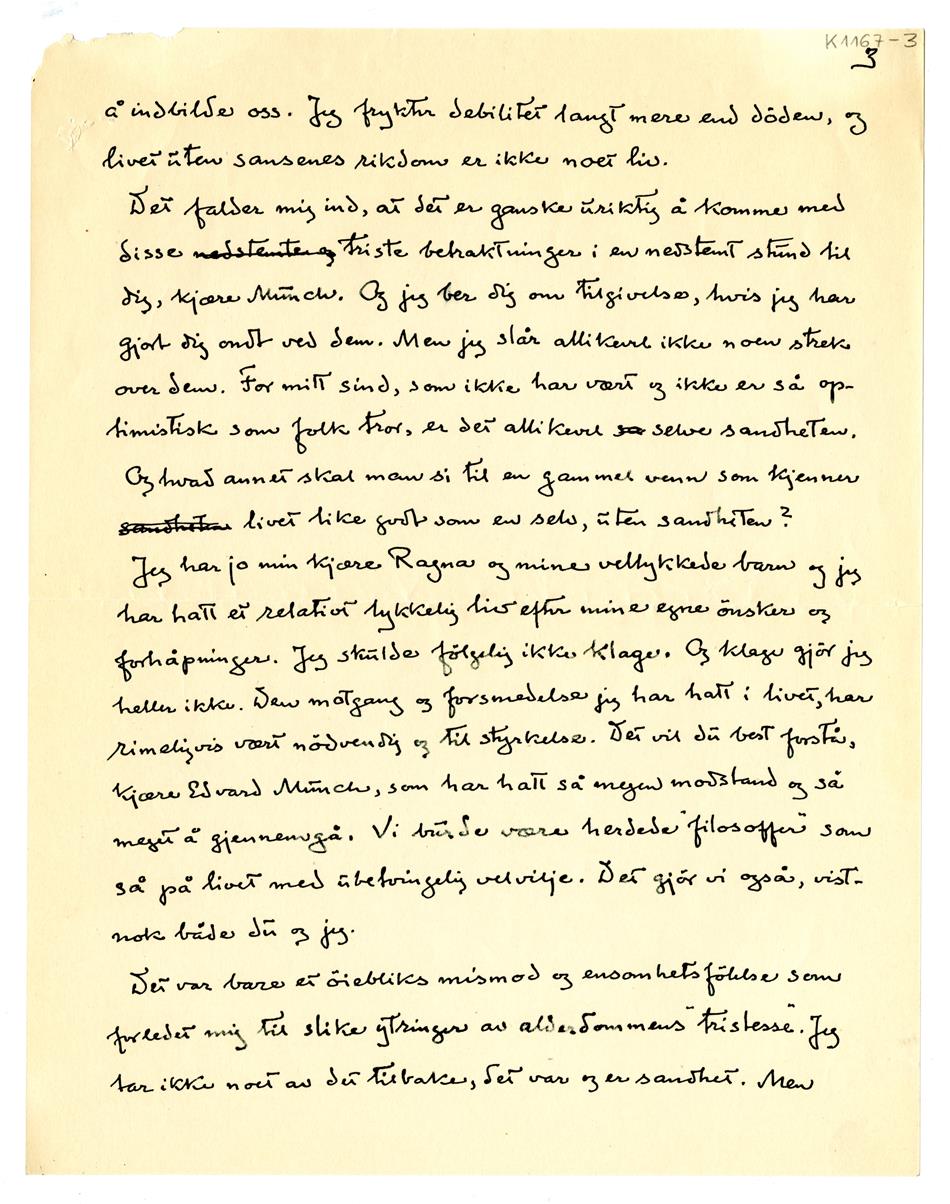 K1167-3
3
å indbilde oss. Jeg frykter debilitet langt mere end döden, og
livet uten sansenes rikdom er ikke noet liv.
Det falder mig ind, at det er ganske uriktig å komme med
disse nedstemte og triste betraktninger i en nedstemt stund til
dig, kjære Munch. Og jeg ber dig om tilgivelse, hvis jeg har
gjort dig ondt ved dem. Men jeg slår allikevel ikke noen strek
over dem. For mitt sind, som ikke har vært og ikke er så op-
timistisk som folk tror, er det allikevel sa selve sandheten.
Og hvad annet skal man si til en gammel venn som kjenner
sandheten livet like godt som en selv, uten sandheten?
Jeg har jo min kjære Ragna og mine vellykkede barn og jeg
har hatt et relativt lykkelig liv efter mine egne önsker og
forhåpninger. Jeg skulde fölgelig ikke klage. Og klage gjör jeg
heller ikke. Den motgang og forsmedelse jeg har hatt i livet, har
rimeligvis vært nödvendig og til styrkelse. Det vil du best forstå,
kjære Edvard Munch, som har hatt så megen modstand og så
meget å gjennemgå. Vi burde være herdede "filosoffer" som
så på livet med ubetvingelig velvilje. Det gjör vi også, vist-
nok både du og jeg.
Det var bare et öiebliks mismod og ensomhetsfölelse som
forledet mig til slike ytringer av alderdommens "tristesse". Jeg
tar ikke noet av det tilbake, det var og er sandhet. Men